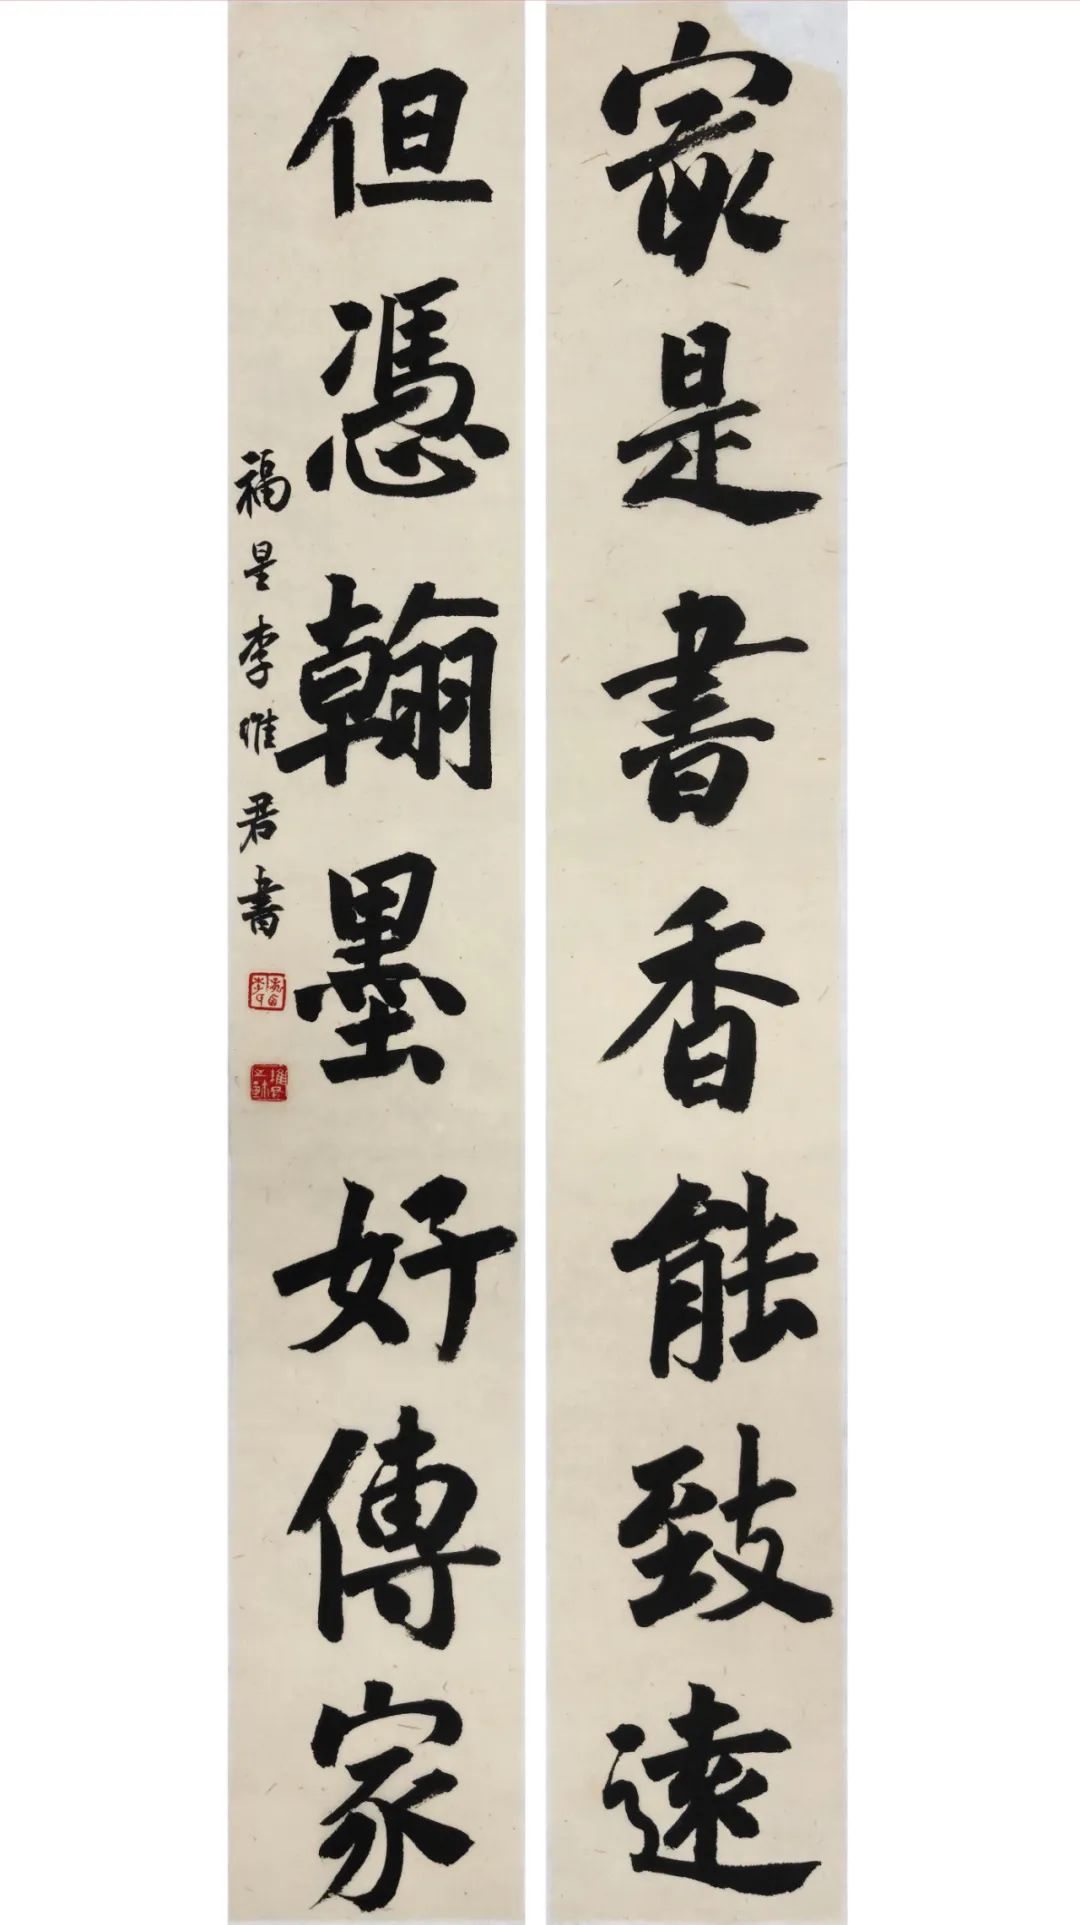 㝡是書香能致遠
但憑翰墨好傳家
福星李惟君書